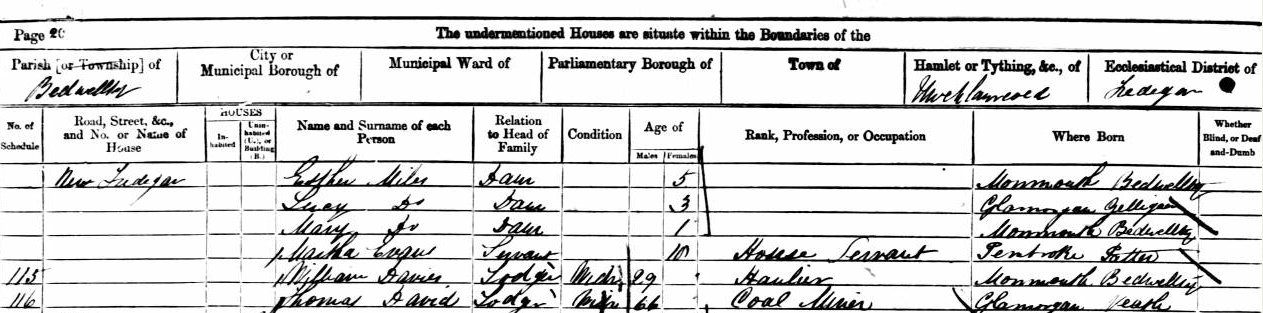 Page 20 The undermentioned Houses are situate within the Boundaries of the
Parish [or Township] of City or Municipal Borough of Municipal Ward of Parliamentary Borough of Town of Hamlet or Tything, &c., of Ecclesiastical District of
Bedwellty Tredegar
No. of Schedule Road, Street, &c., and No. or Name of House HOUSES Inhabited Uninhabited (U.), or Building (B.) Name and Surname of each Person Relation to Head of Family Condition Age of Males Females Rank, Profession, or Occupation Where Born Whether Blind, or Deaf-and-Dumb
New Tredegar Esther Miles Daur 5 Monmouth Bedwellty
Lucy Do Daur 3 Glamorgan Gelligaer
Mary Do Daur 1 Monmouth Bedwellty
Martha Evans Servant House Servant Pembroke
115 William Davies Lodger Widr 29 Haulier Monmouth Bedwellty
116 Thomas David Lodger Widr 66 Coal Miner Glamorgan Neath